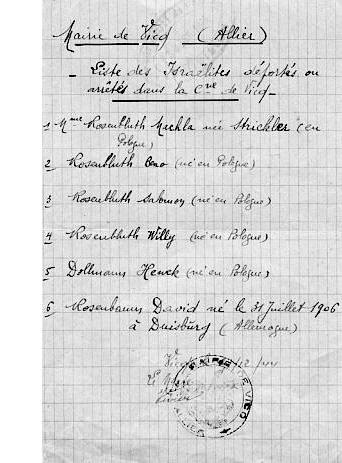 Mairie de Vicq (Allier)
- Liste des Israëlites déportés ou
arrêtés dans la Cne de Vicq -
1 Mme Rosenbluth Machla née Strickler (en
Pologne)
2 Rosenbluth Beno (né en Pologne)
3 Rosenbluth Salomon (né en Pologne)
4 Rosenbluth Willy (né en Pologne)
5 Dollmann Henek (né en Pologne)
6 Rosenbaum David né le 31 juillet 1906
à Duisburg (Allemagne)
Vicq 12/44
Le Maire
MAIRIE DE VICQ
ALLIER